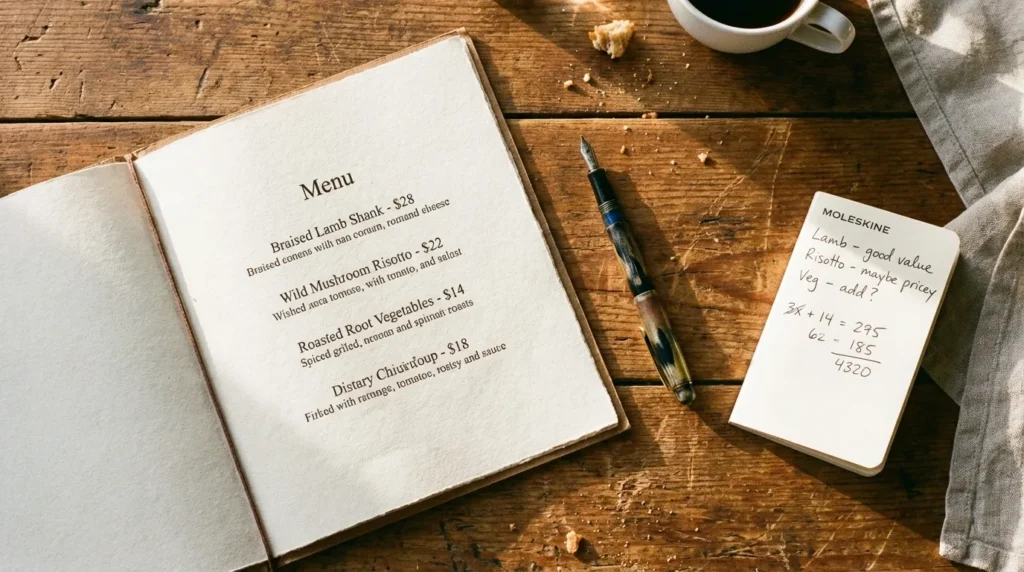 Menu
Braised Lamb Shank - $28
Braised conens with nan conum, romand eheese
Wild Mushroom Risotto - $22
Wished aoca tomose, with tomato, and salast
Roasted Root Vegetables - $14
Spiced grlled, and spinnan roasts
Distary - $18
with tomatoe, rosty and sauce
MOLESKINE
Lamb - good value
Risotto - maybe pricey
Veg - add ?
+ 14 = 295
62 - 185
4320